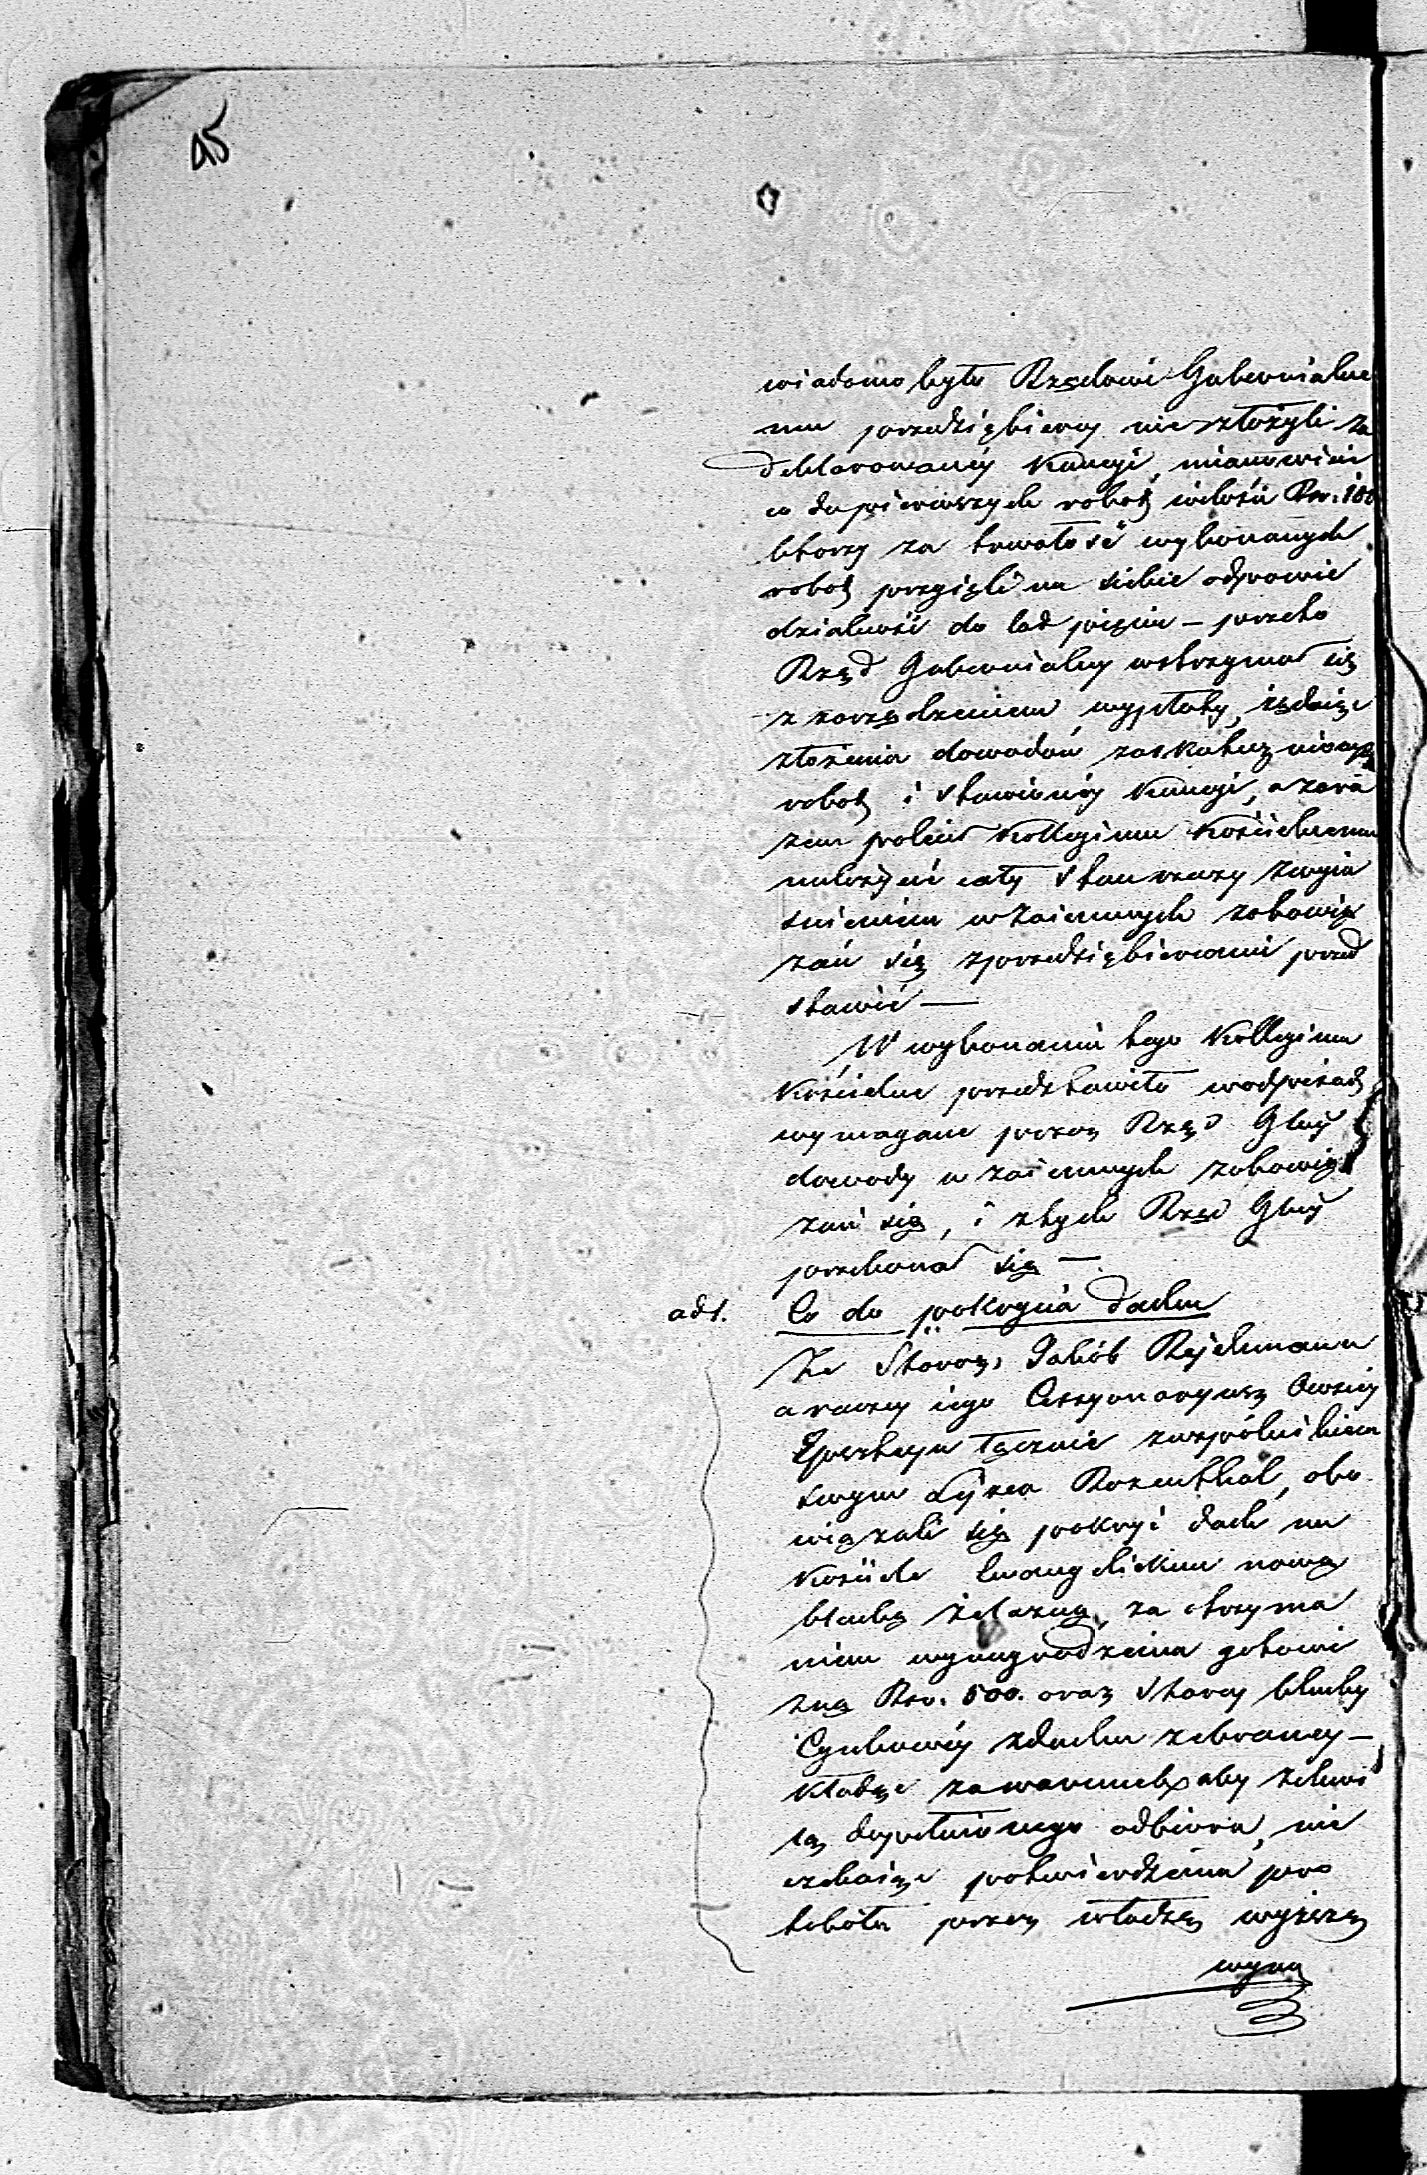 95
wiadomo było Rządowi Gubernialne
mu przedsiębiercy nie złożyli za
deklarowanéy Kaucyi, mianowicie
co do pierwszych robot ilości Rsr. 100
którzy za trwałość wykonanych
robot przyięli na siebie odpowie
dzialność do lat pięciu – przeto
Rząd Gubernialny wstrzymał się
z zarządzeniem wypłaty, żądaiąc
złożenia dowodów
robot i stawionéy Kaucyi, a zara
zem polecił Kollegium Kościelnemu
cały stan rzeczy z wyia
śnieniem wzaiemnych zobowią
zań się z przedsiębiercami przed
stawić —
W wykonaniu tego Kollegium
Kościelne przedstawiło w odpisach
wymagane przez Rząd Glny
dowody wzaiemnych zobowią
zań się, i z tych Rząd Glny
przekonał się —
ad 1. Co do pokrycia dachu
Że Staroz. Jakób Rejchmann
a raczey iego Cessyonaryusz Owsiey
Epszteyn łącznie z wspólnikiem
swym Leyzea Rozenthal, obo
wiązali się pokryć dach na
Kościele Ewangelickim nową
blachą żelazną, za otrzyma
niem wynagrodzenia gotowi
zną Rsr. 500. oraz starey blachy
Cynkowéy z dachu zebraney –
kładąc za warunek, aby z chwi
lą dopełnionego odbioru, nie
czekaiąc potwierdzenia pro
tokółu przez władzę wyższą
wyna